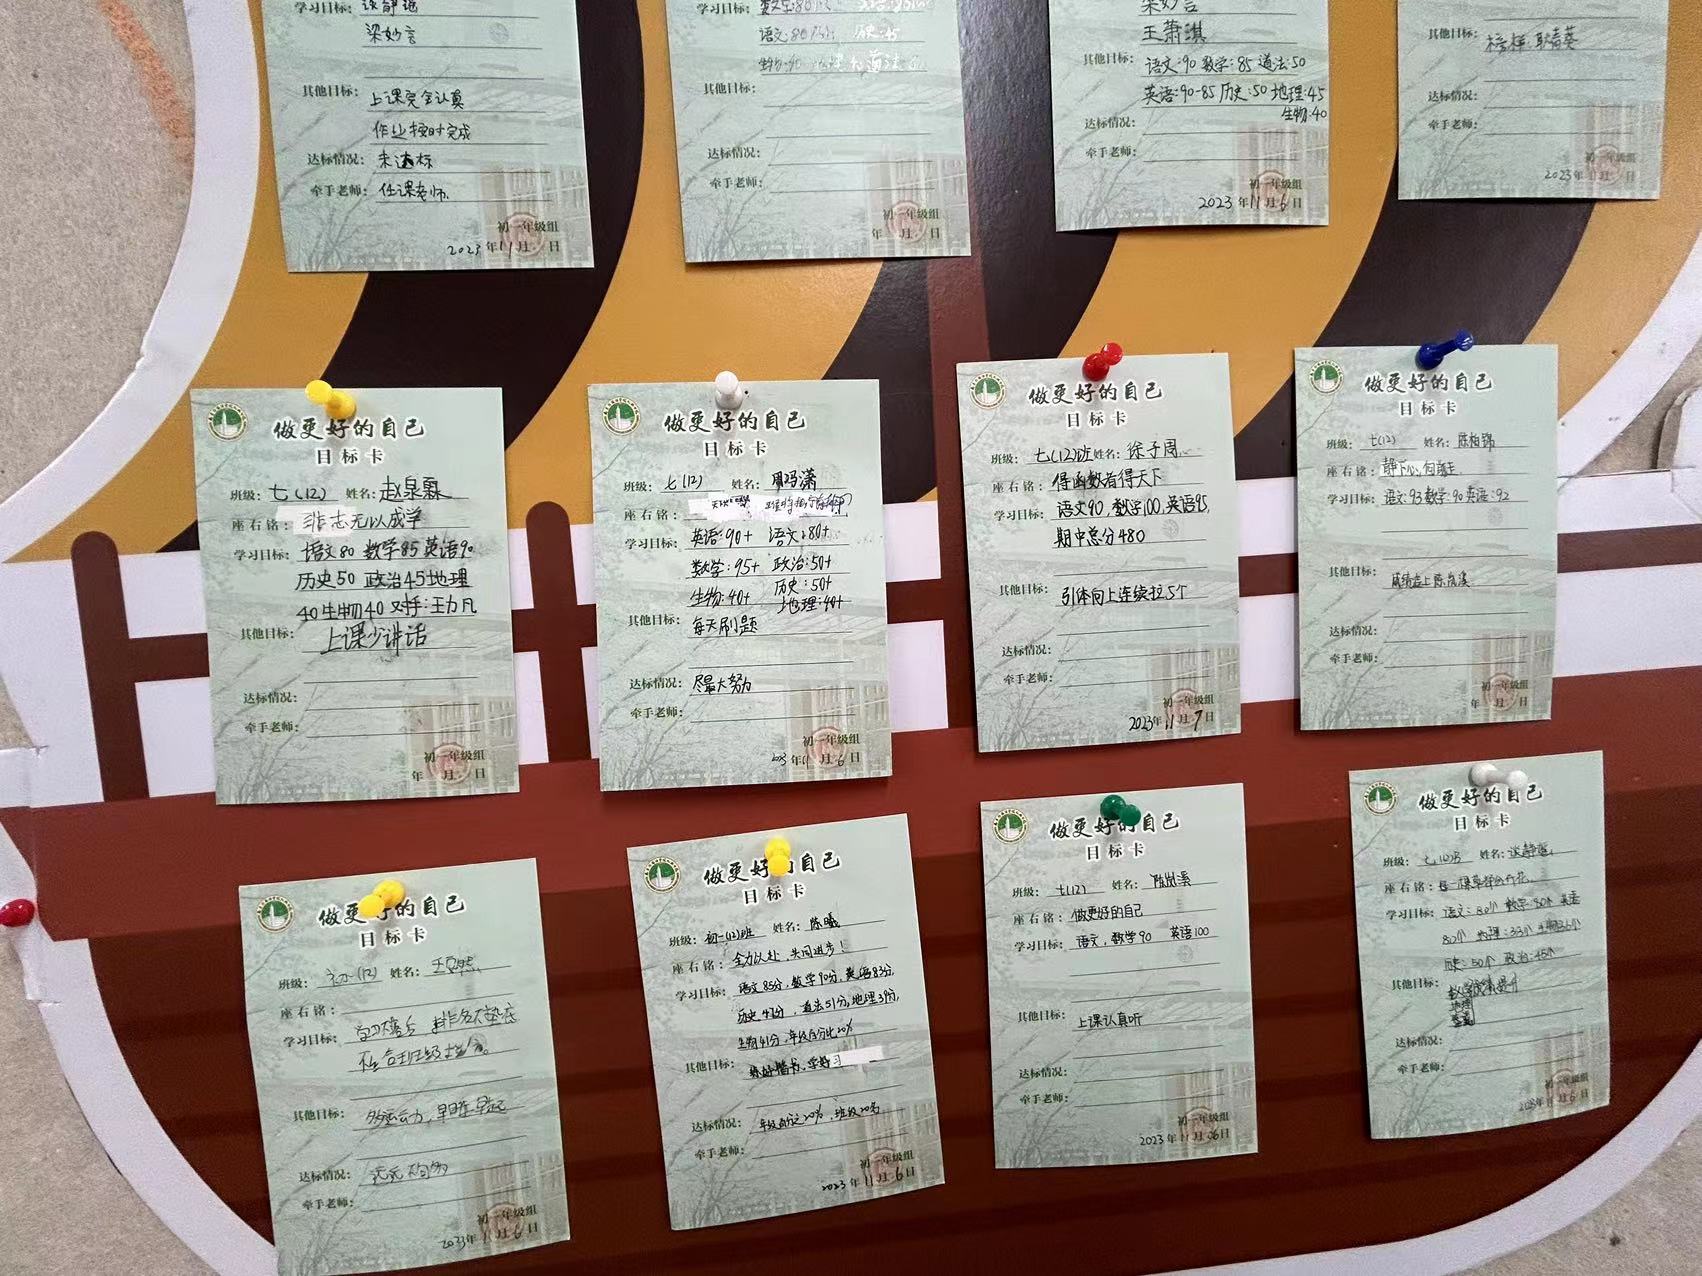 学习目标: 谈静瑶
梁妙言
其他目标: 上课完全认真
作业按时完成
达标情况: 未达标
牵手老师: 任课老师
初一年级组
2023年11月 日
学习目标:
语文:80 历史:45
其他目标:
达标情况:
牵手老师:
初一年级组
年 月 日
梁妙言
王萧淇
其他目标: 语文:90 数学:85 道法:50
英语:90-85 历史:50 地理:45
生物:40
达标情况:
牵手老师:
初一年级组
2023年11月6日
其他目标: 榜样:耿春葵
达标情况:
牵手老师:
初一年级组
2023年11月 日
做更好的自己
目标卡
班级: 七(12) 姓名: 赵泉霖
座右铭: 非志无以成学
学习目标: 语文80 数学85 英语90
历史50 政治45 地理
40 生物40 对手:王力凡
其他目标: 上课少讲话
达标情况:
牵手老师:
初一年级组
年 月 日
做更好的自己
目标卡
班级: 七(12) 姓名: 周冯潇
座右铭:
学习目标: 英语:90+ 语文:80+
数学:95+ 政治:50+
生物:40+ 历史:50+
地理:40+
其他目标: 每天刷题
达标情况: 尽最大努力
牵手老师:
初一年级组
2023年11月6日
做更好的自己
目标卡
班级: 七(12)班 姓名: 徐子周
座右铭: 得函数者得天下
学习目标: 语文90,数学100,英语95,
期中总分480
其他目标: 引体向上连续拉5个
达标情况:
牵手老师:
初一年级组
2023年11月7日
做更好的自己
目标卡
班级: 七(12) 姓名: 陈柏锦
座右铭: 静下心,何惧王
学习目标: 语文:93 数学:90 英语:92
其他目标: 成绩追上陈岚溪
达标情况:
牵手老师:
初一年级组
年 月 日
做更好的自己
目标卡
班级: 初一(12) 姓名:
座右铭:
学习目标: 学习不落后 排名不垫底
不给班级拉分。
其他目标: 多运动,早睡早起
达标情况:
牵手老师:
初一年级组
2023年11月6日
做更好的自己
目标卡
班级: 初一(12)班 姓名: 陈曦
座右铭: 全力以赴,共同进步!
学习目标: 语文85分,数学90分,英语83分,
历史47分,道法51分,地理39分,
生物41分,年级百分比20%
其他目标: 练好楷书,学好习
达标情况: 年级百分之20%,班级20名
牵手老师:
初一年级组
2023年11月6日
做更好的自己
目标卡
班级: 七(12) 姓名: 陈岚溪
座右铭: 做更好的自己
学习目标: 语文,数学90 英语100
其他目标: 上课认真听
达标情况:
牵手老师:
初一年级组
2023年11月06日
做更好的自己
目标卡
班级: 七(12)班 姓名: 谈静瑶
座右铭: 每一棵草都会开花
学习目标: 语文:80个 数学:80个 英语
80个 地理:33个 生物36个
历史:50个 政治:45个
其他目标: 数学成绩提升
地理
达标情况:
牵手老师:
初一年级组
2023年11月6日